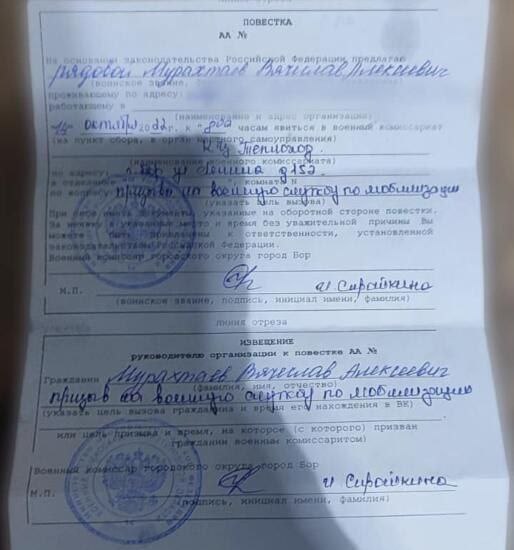 линия отреза
ПОВЕСТКА
АА №
На основании законодательства Российской Федерации предлагаю
рядовой Мурахтаев Вячеслав Алексеевич
(воинское звание,
проживающему по адресу:
работающему в
(наименование и адрес организации)
октября 2022г. к 800 часам явиться в военный комиссариат
(на пункт сбора, в орган местного самоуправления)
К/ц Теплоход
(наименование военного комиссариата)
по адресу: г. Бор ул Ленина д 152
в отделение комната н
по вопросу призыв на военную службу по мобилизации
(указать цель вызова)
При себе иметь документы, указанные на оборотной стороне повестки.
За неявку в указанные место и время без уважительной причины Вы
можете быть привлечены к ответственности, установленной
законодательством Российской Федерации.
Военный комиссар городского округа город Бор
М.П. и Сироткина
(воинское звание, подпись, инициал имени, фамилия)
линия отреза
ИЗВЕЩЕНИЕ
руководителю организации к повестке АА №
Гражданин Мурахтаев Вячеслав Алексеевич
(фамилия, имя, отчество)
призыв на военную службу по мобилизации
(указать цель вызова гражданина и время его нахождения в ВК)
или цель призыва и время, на которое (с которого) призван
гражданин военным комиссаритом)
Военный комиссар городского округа город Бор
М.П. и Сироткина
(подпись, инициал имени, фамилия)